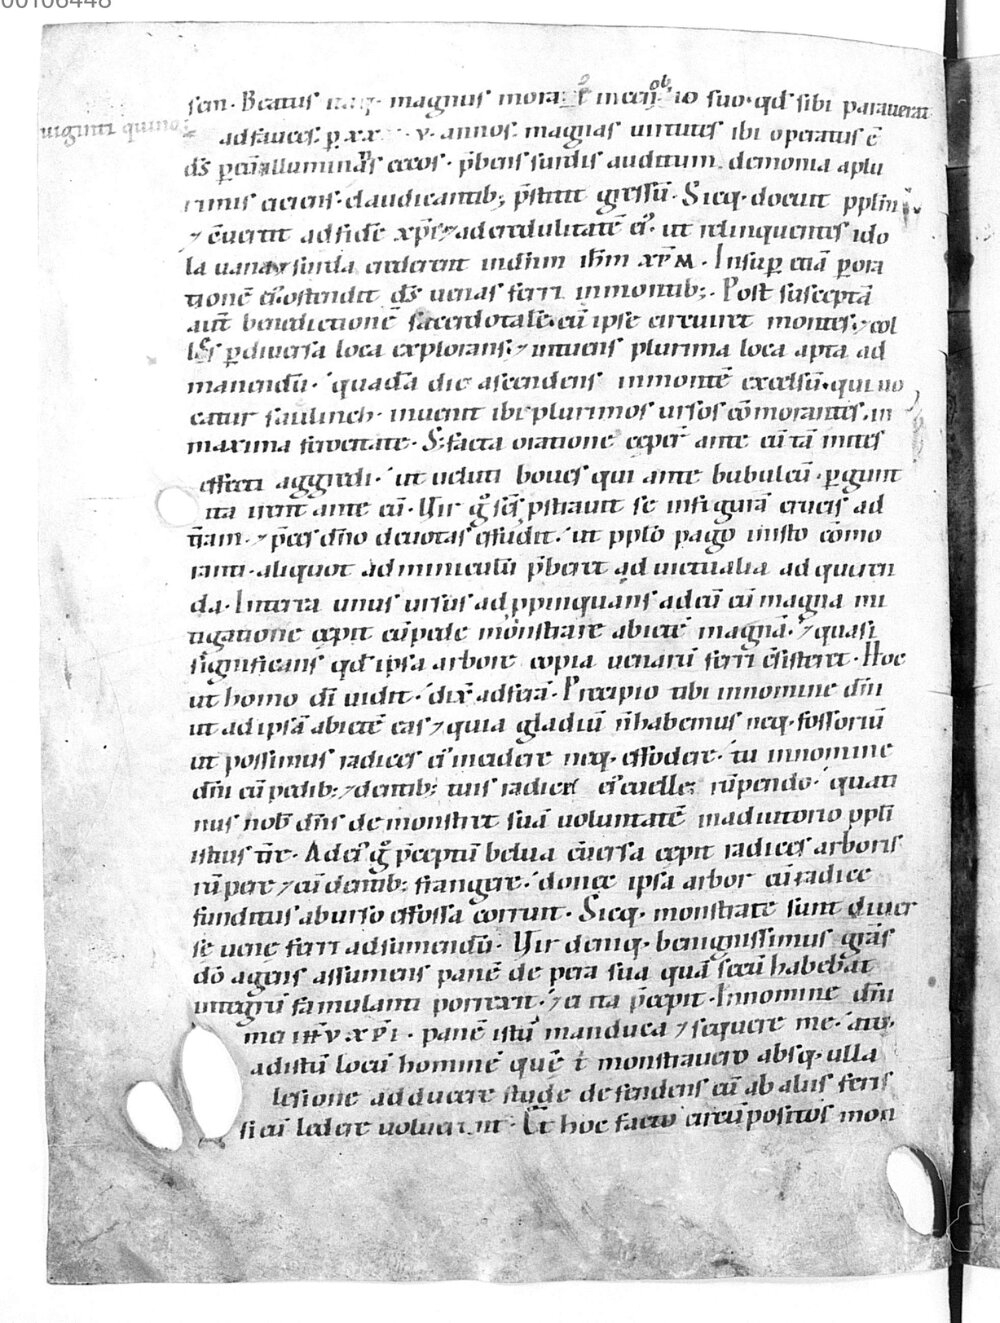 00106448
sem. Beatus itaq. magnus morat᷒ ĩ incenobio suo. qđ sibi parauerat
uiginti quinq;
ad fauces. ꝑ xx v. annos. magnas uirtutes ibi operatus ē
dn̄s ꝑ eū. alluminās cecos. p̄bens surdis auditum. demonia aplu
rimis eiciens. claudicantib; p̄stitit gressū. Sicq. docuit pplm̄
⁊ c̄uertit ad fidē xp̄i. ⁊ ad credulitatē ei᷒. ut relinquentes ido
la uana ⁊ surda crederent in dn̄m ihm̄ xp̄m. Insuꝑ etiā ꝑ ora
tionē ei᷒ ostendit dn̄s uenas ferri in montib;. Post susceptā
aut̄ benedictionē sacerdotalē. cū ipse circuiret montes. ⁊ col
les ꝑ diuersa loca explorans. ⁊ intuens plurima loca apta ad
manendū. quadā die ascendens in montē excelsū. qui uo
catur saulineh. inuenit ibi plurimos ursos cōmorantes. in
maxima ferocitate. S; facta oratione ceper̄ ante eū tā mites
effecti aggredi. ut ueluti boues qui ante bubulcū. ꝑgunt
ita irent ante eū. Uir g̊ scs̄ pstrauit se in figurā crucis ad
t̄ram. ⁊ p̄ces dn̄o deuotas effudit. ut pplo pago in isto cōmo
ranti. aliquot adminiculū p̄beret ad uictualia ad quiren
da. Interea unus ursus ad ppinquans ad eū cū magna mi
tigatione cepit cū pede monstrare abietē magnā. ⁊ quasi
significans qđ ipsa arbore copia uenarū ferri c̄sisteret. Hoc
ut homo dī uidit. dix̄ ad ferā. Precipio tibi in nomine dn̄i
ut ad ipsā abietē eas ⁊ quia gladiū n̄ habemus neq. fossoriū
ut possimus radices ei᷒ incidere neq. effodere. tu in nomine
dn̄i cū pedib; ⁊ dentib; tuis radices ei᷒ euelle; rūpendo. quati
nus nob̄ dn̄s demonstret suā uoluntatē in adiutorio ppli
istius t̄re. Ad ei᷒ g̊ p̄ceptū belua c̄uersa cepit radices arboris
rūpere ⁊ cū dentib; frangere. donec ipsa arbor cū radice
funditus ab urso effossa corruit. Sicq. monstrate sunt diuer
se uene ferri ad sumendū. Uir deniq. benignissimus grās
dō agens assumens panē de pera sua quā secū habebat
integrū famulanti porrexit. ⁊ ei ita p̄cepit. In nomine dn̄i
mei ihv xp̄i. panē istū manduca ⁊ sequere me. atq.
ad istū locū hominē quē t̄ monstrauero absq. ulla
lesione adducere stude defendens eū ab aliis feris
si eū ledere uoluerint. Et hoc facto circūpositos mon